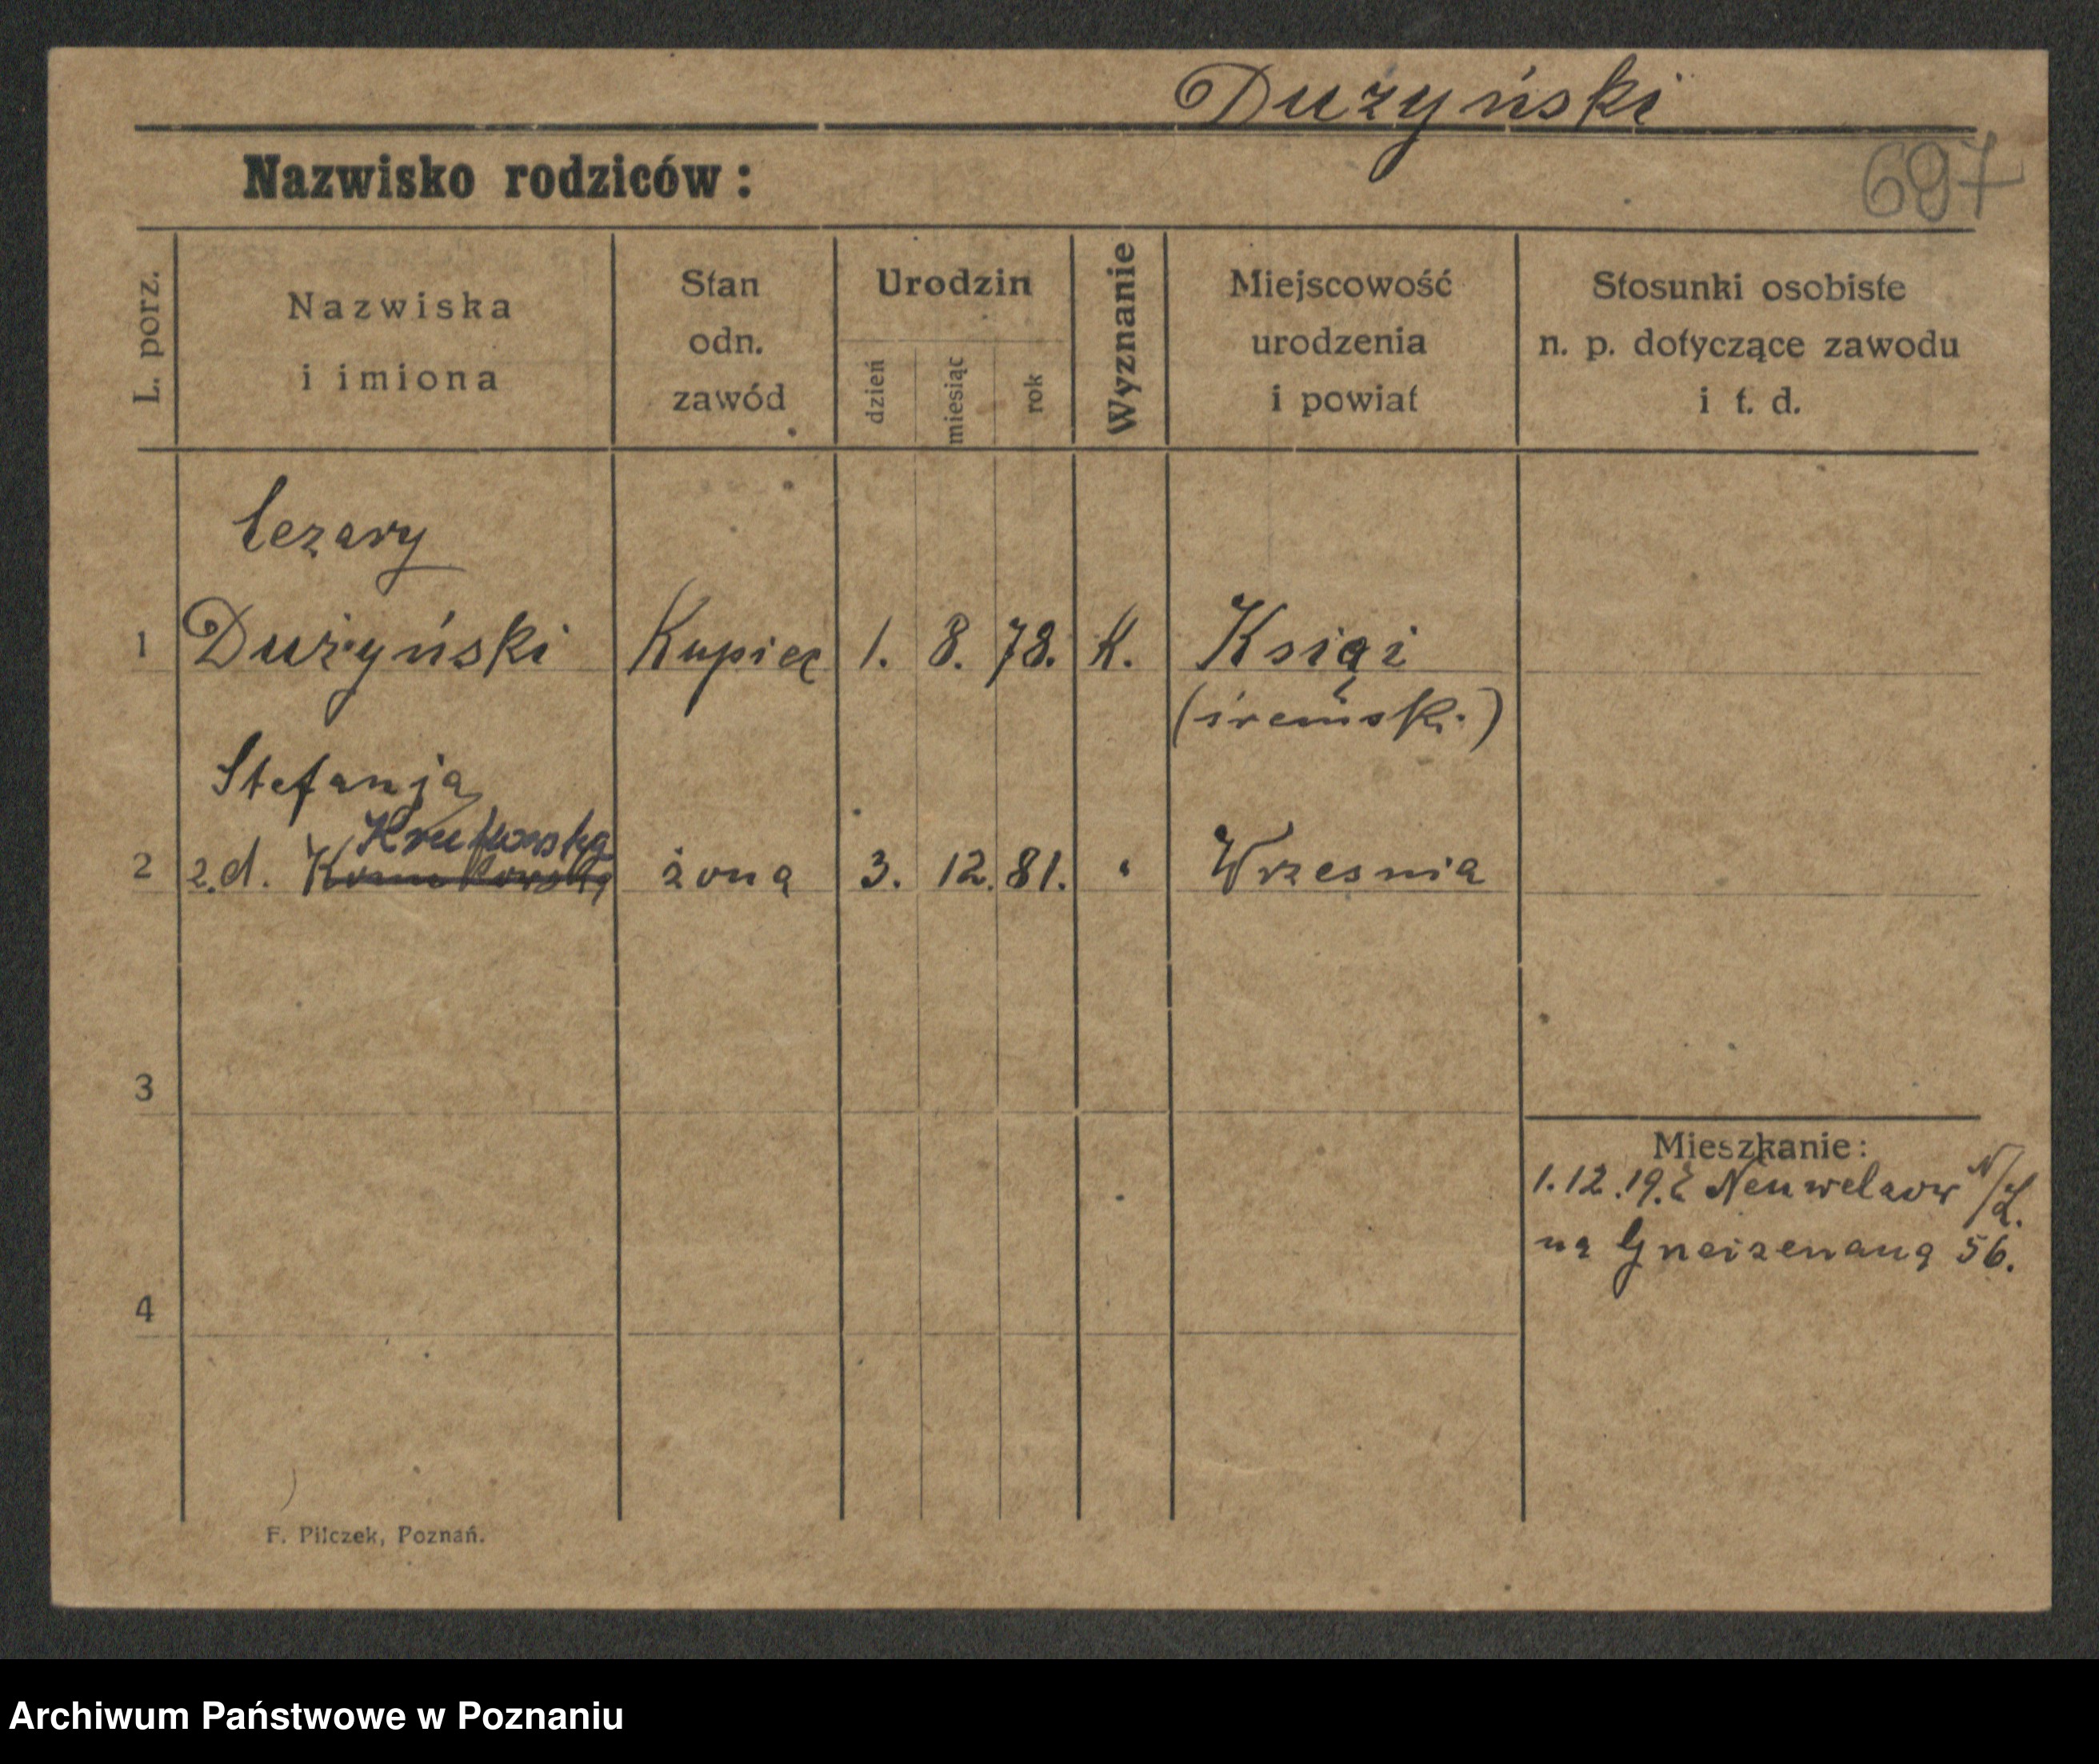 Dużyński
Nazwisko rodziców:
697
L. porz.
Nazwiska
i imiona
Stan
odn.
zawód
Urodzin
dzień
miesiąc
rok
Wyznanie
Miejscowość
urodzenia
i powiat
Stosunki osobiste
n. p. dotyczące zawodu
i t. d.
Cezary
1 Dużyński Kupiec 1. 8. 78. K. Książ
(śremsk.)
Stefanja
Krukowska
2 z.d. żona 3. 12. 81. " Wrzesnia
3
Mieszkanie:
1.12.19. z Neuwelzow N/L.
na Gneizenaua 56.
4
F. Pilczek, Poznań.
Archiwum Państwowe w Poznaniu